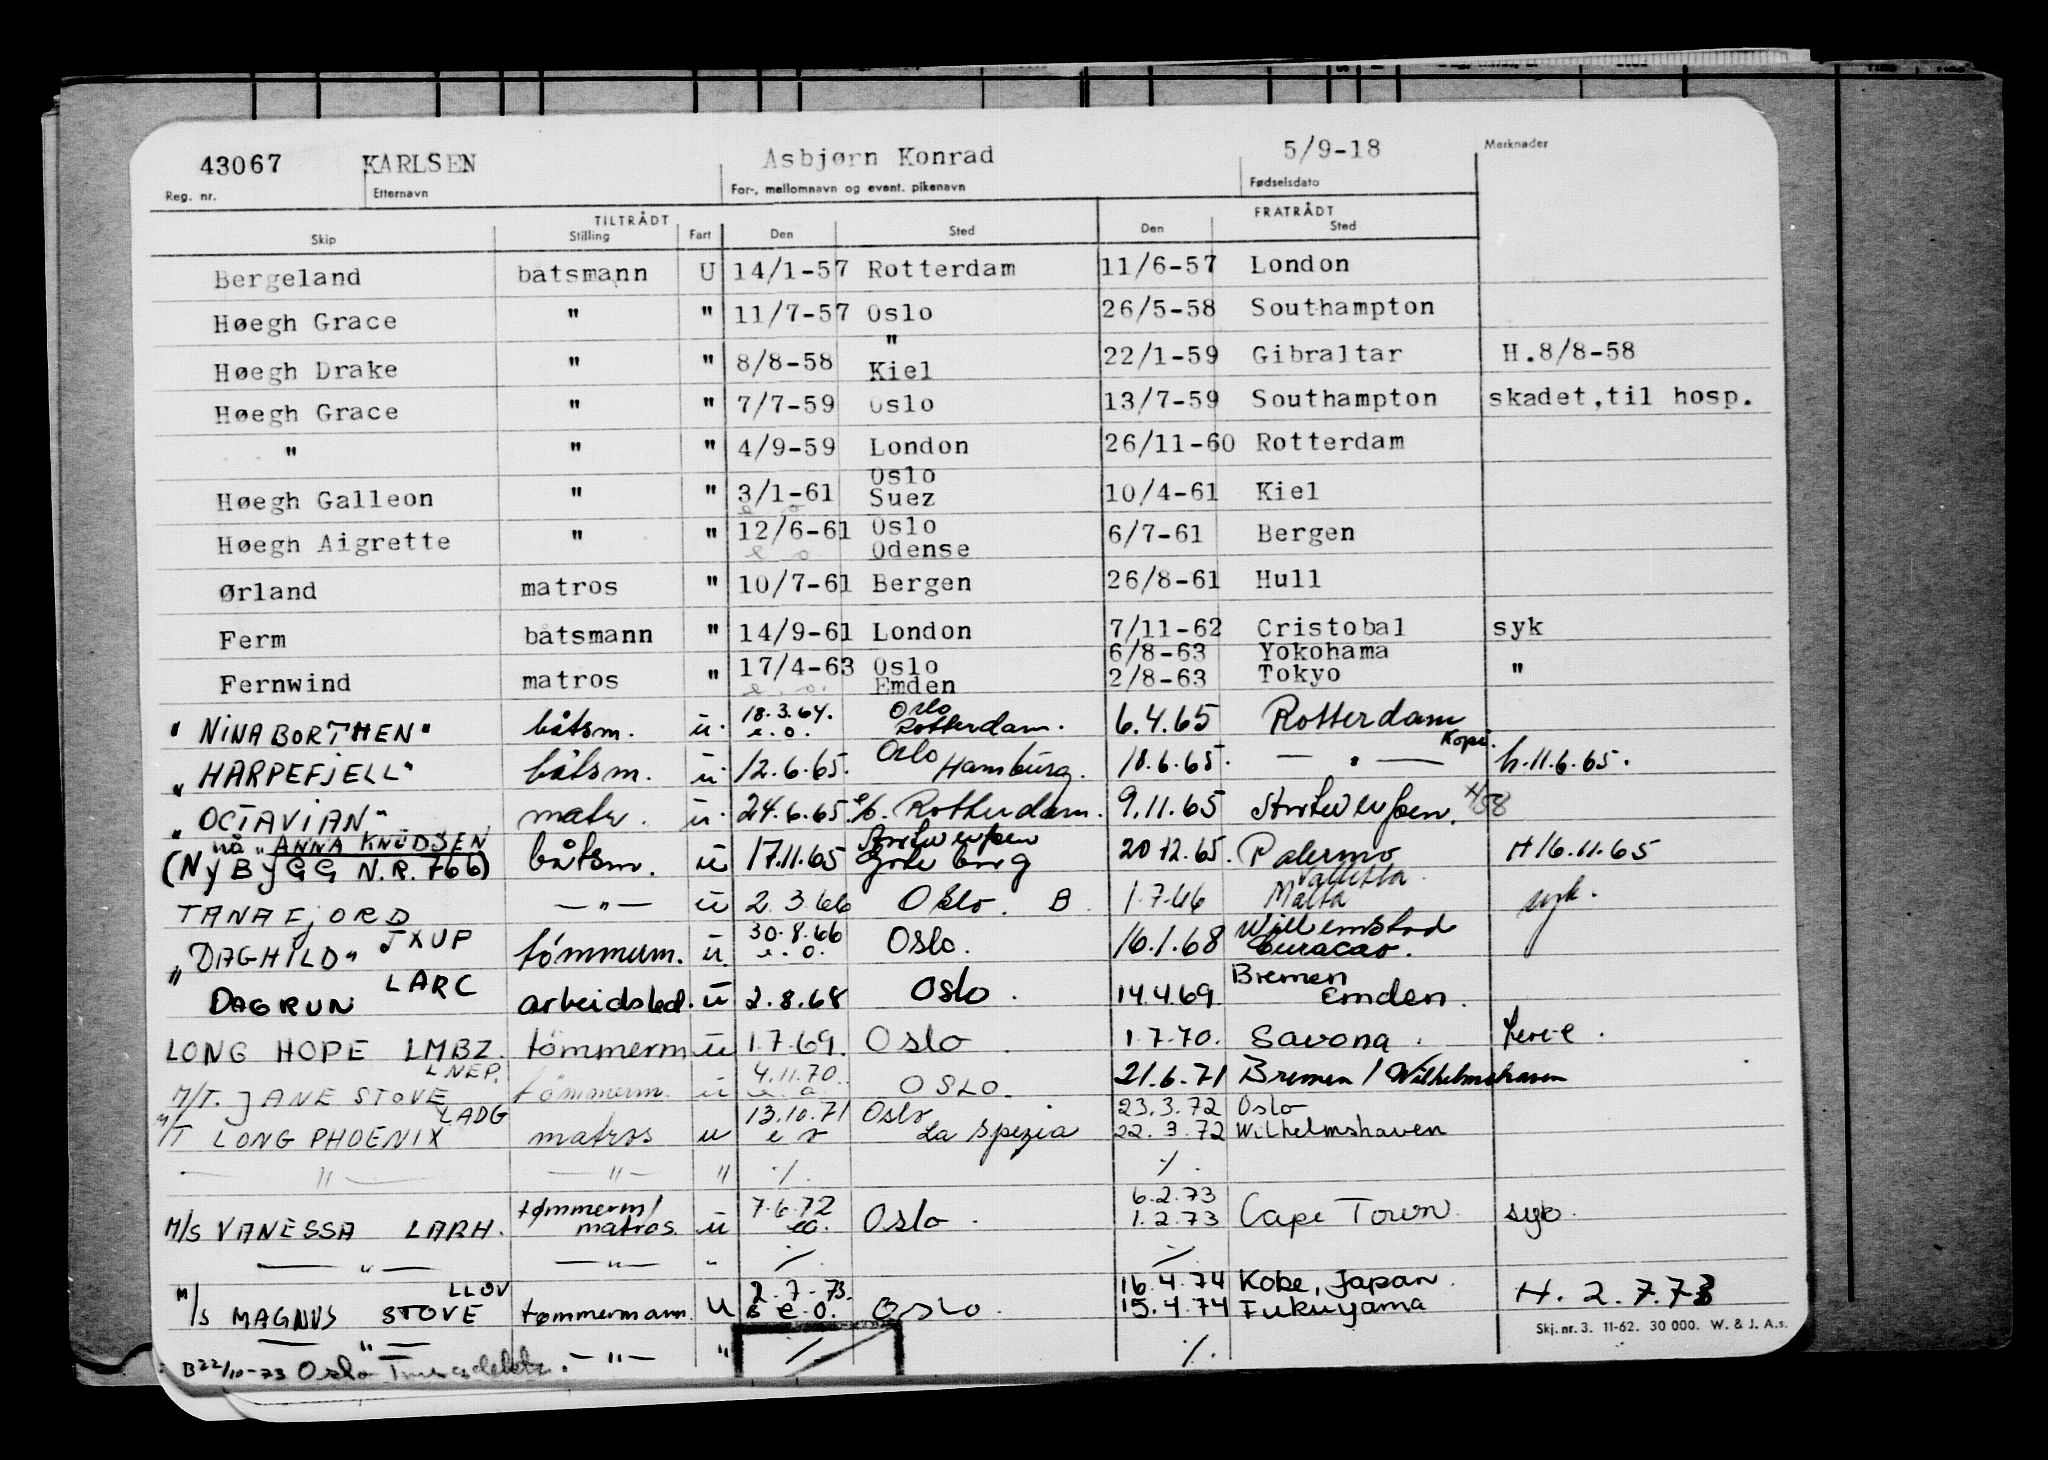 43067 KARLSEN Asbjørn Konrad 5/9-18 Merknader
Reg. nr. Etternavn For-, mellomnavn og event. pikenavn Fødselsdato
TILTRÅDT FRATRÅDT
Skip Stilling Fart Den Sted Den Sted
Bergeland båtsmann U 14/1-57 Rotterdam 11/6-57 London
Høegh Grace " " 11/7-57 Oslo 26/5-58 Southampton
"
Høegh Drake " " 8/8-58 Kiel 22/1-59 Gibraltar H.8/8-58
Høegh Grace " " 7/7-59 Oslo 13/7-59 Southampton skadet,til hosp.
" " " 4/9-59 London 26/11-60 Rotterdam
Oslo
Høegh Galleon " " 3/1-61 Suez 10/4-61 Kiel
e o
Høegh Aigrette " " 12/6-61 Oslo 6/7-61 Bergen
e o Odense
Ørland matros " 10/7-61 Bergen 26/8-61 Hull
Ferm båtsmann " 14/9-61 London 7/11-62 Cristobal syk
17/4-63 Oslo 6/8-63 Yokohama
Fernwind matros " e. o. Emden 2/8-63 Tokyo "
18.3.64. Oslo
"NINA BORTHEN" båtsm. u. e.o. Rotterdam. 6.4.65 Rotterdam
Kopi.
"HARPEFJELL" båtsm. u. 12.6.65. Oslo Hamburg. 18.6.65. — " — h.11.6.65.
"OCTAVIAN" matr. u. 24.6.65. Rotterdam. 9.11.65 Antwerpen.
nå "ANNA KNUDSEN Antwerpen
(NYBYGG N.R. 766) båtsm. u 17.11.65 Göteborg 20.12.65. Palermo H 16.11.65
Valletta
TANAFJORD —"— u 2.3.66 Oslo. B. 1.7.66 Malta syk.
JXUP 30.8.66 Willemstad
"DAGHILD" tømmerm. u. e.o. Oslo. 16.1.68 Curacao.
LARC Bremen
" DAGRUN arbeidsled. u 2.8.68 Oslo. 14.4.69. Emden.
LONG HOPE LMBZ. tømmerm u 1.7.69. Oslo. 1.7.70. Savona.
LNEP. 4.11.70.
M/T. JANE STOVE tømmerm. u e.o OSLO. 21.6.71 Bremen / Wilhelmshaven
LADG 13.10.71 Oslo 23.3.72 Oslo
M/T LONG PHOENIX matros u e o La Spezia 22.3.72 Wilhelmshaven
— " — — " — " ./. ./.
tømmerm/ 7.6.72 6.2.73
M/S VANESSA LARH. matros. u eo. Oslo. 1.2.73 Cape Town. syk.
— " — — " — " ./. ./.
LLOV 2.7.73. 16.4.74 Kobe, Japan.
M/S MAGNUS STOVE tømmermann. u e.o. Oslo. 15.4.74 Fukuyama H. 2.7.73
Skj. nr. 3. 11-62. 30 000. W. & J. A.s.
— " — — " — " ./. ./.
B22/10-73 Oslo